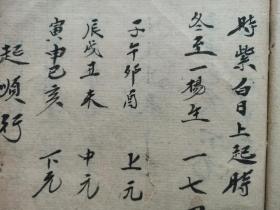 時紫白日上起時
冬至一楊生 一七四
子午卯酉 上元
辰戌丑未 中元
寅申巳亥 下元
起順行